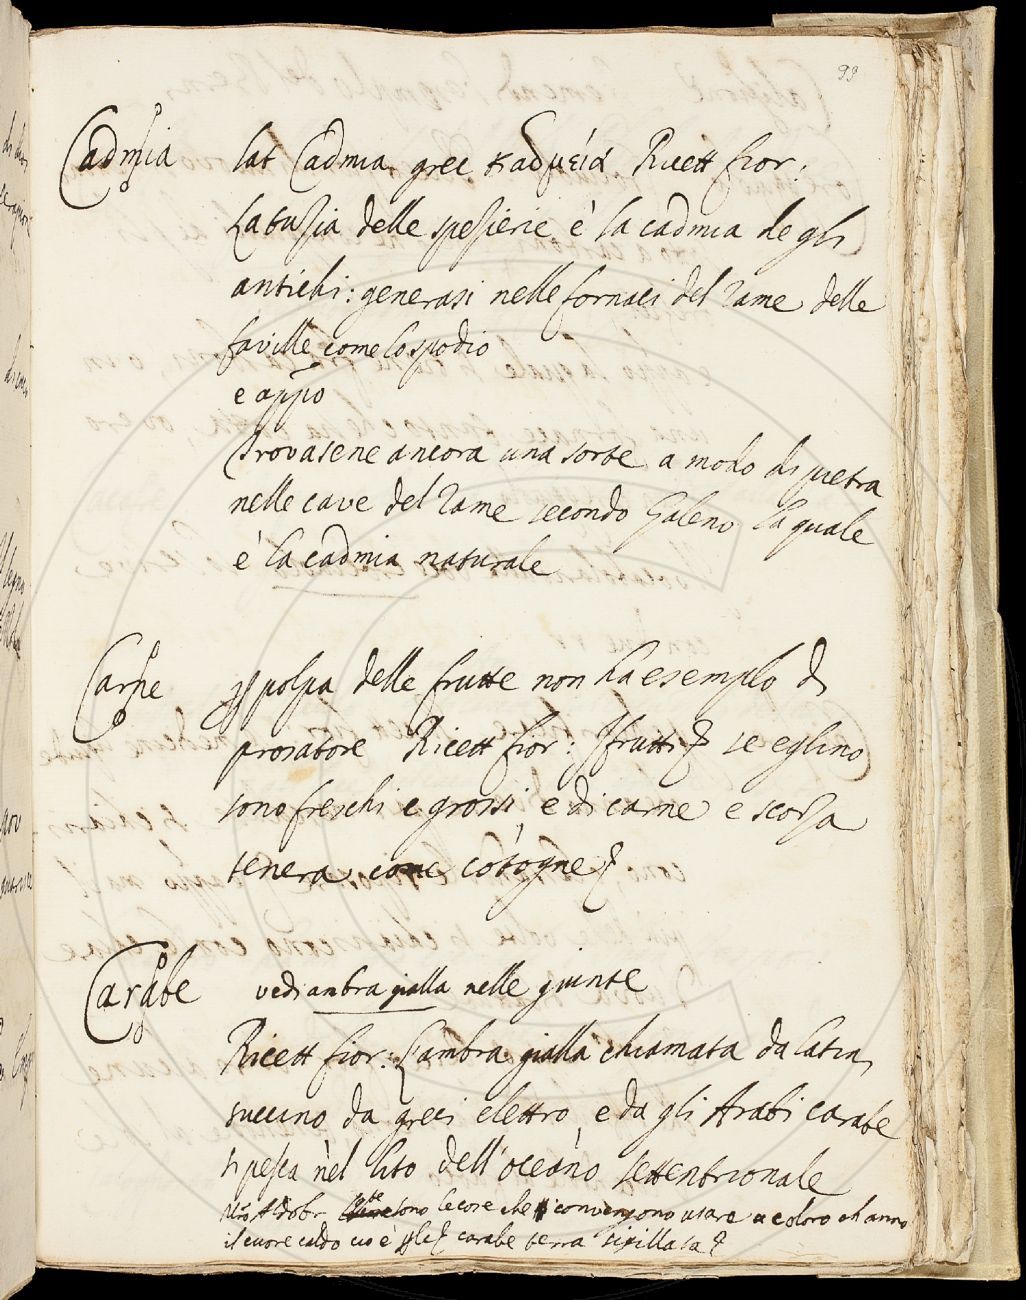 99
Cadmia lat Cadmia, grec καδμεία Ricett fior:
La tuzia delle spezierie è la cadmia de gli
antichi: generasi nelle fornaci del rame delle
faville come lo spodio
e appo
Trovasene ancora una sorte a modo di pietra
nelle cave del rame secondo Galeno la quale
è la cadmia naturale
Carne polpa delle frutte non ha esemplo di
prosatore Ricett fior: I frutti se eglino
sono freschi e grossi, e di carne e scorza
tenera, come cotogne
Carabe vedi ambra gialla nelle giunte
Ricett fior: L'ambra gialla chiamata da latini
succino da greci elettro, e da gli Arabi carabe
si pesca nel lito dell'oceano settentrionale
Aldobr sono le cose che si convengono usare a coloro ch anno
il cuore caldo cio è carabe terra sigillata